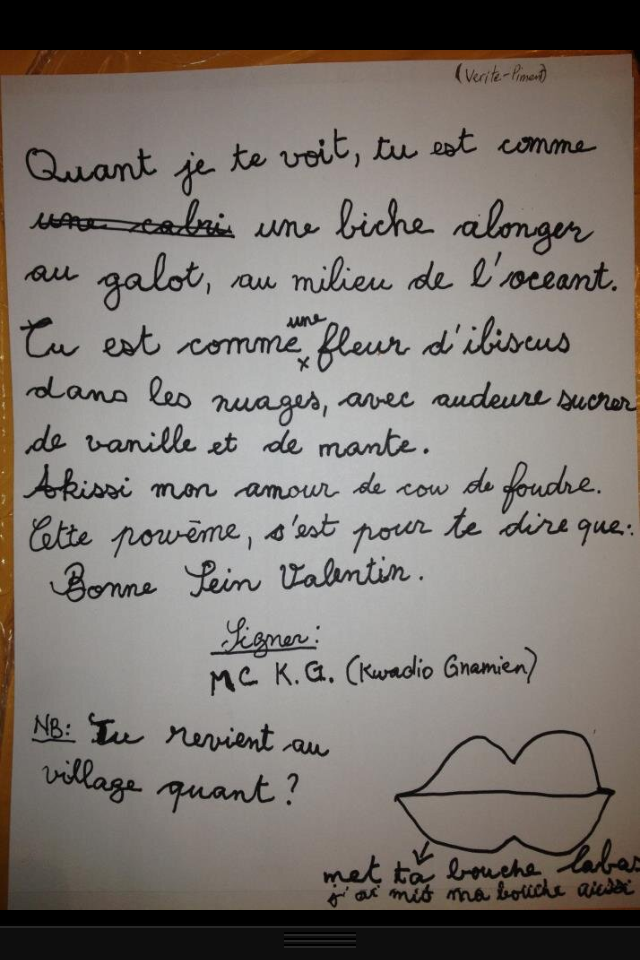 (Verite-Piment)
Quant je te voit, tu est comme
une calri une biche alonger
au galot, au milieu de l'oceant.
Tu est comme une fleur d'ibiscus
dans les nuages, avec audeure sucrer
de vanille et de mante.
Akissi mon amour de cou de foudre.
Cette powême, s'est pour te dire que:
Bonne Sein Valentin.
Signer:
MC K.G. (Kwadio Gnamien)
NB: Tu revient au
village quant ?
met ta bouche labas
j'ai mis ma bouche aiussi